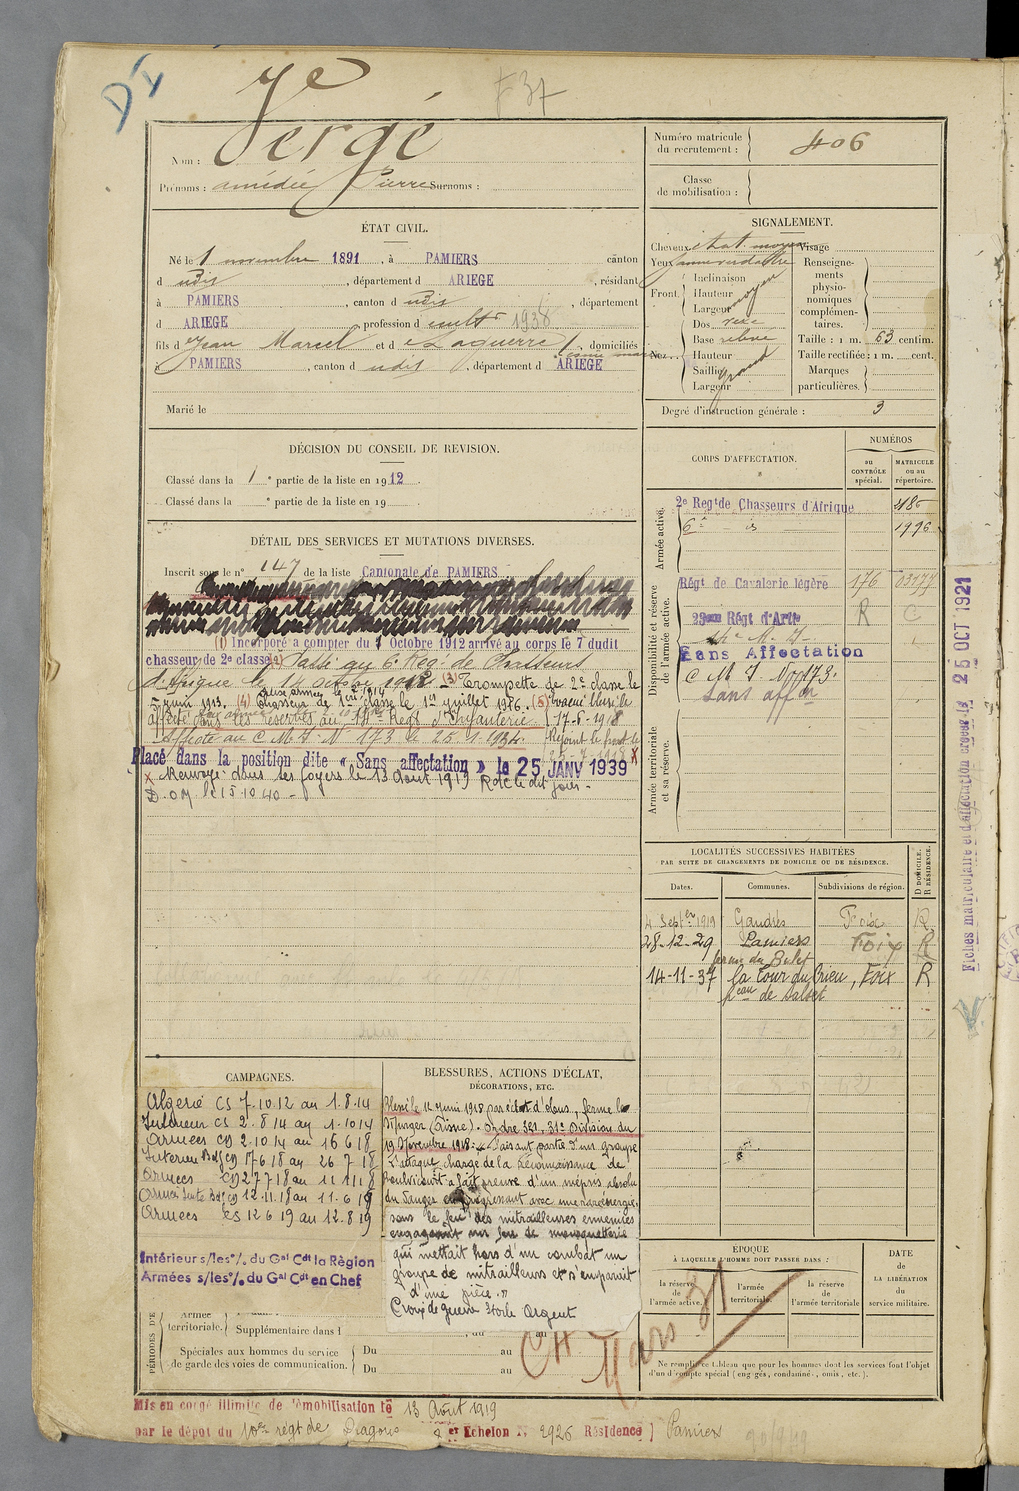 DI
7e
F 37
Nom : Vergé
Prénoms : amédée Pierre Surnoms :
Numéro matricule du recrutement : 406
Classe de mobilisation :
ÉTAT CIVIL.
Né le 1 novembre 1891, à PAMIERS canton
d udis, département d ARIEGE, résidant
à PAMIERS, canton d udis, département
d ARIEGE, profession d cultr 1938
fils d Jean Marcel et d Laguerre, domiciliés
à PAMIERS, canton d udis, département d ARIEGE
Marié le
SIGNALEMENT.
Cheveux chat. moyen
Yeux jaune verdâtre
Front. Inclinaison
Hauteur moyen
Largeur
Nez. Dos
Base relevé
Hauteur grand
Saillie
Largeur
Visage
Renseignements physionomiques complémentaires.
Taille : 1 m. 63 centim.
Taille rectifiée : 1 m. cent.
Marques particulières.
Degré d'instruction générale : 3
DÉCISION DU CONSEIL DE REVISION.
Classé dans la 1e partie de la liste en 1912
Classé dans la e partie de la liste en 19
DÉTAIL DES SERVICES ET MUTATIONS DIVERSES.
Inscrit sous le n° 147 de la liste Cantonale de PAMIERS
(1) Incorporé à compter du 1 Octobre 1912 arrivé au corps le 7 dudit
chasseur de 2e classe (2) Passé au 6e Reg. de Chasseurs
d'Afrique le 14 octobre 1912 (3) Trompette de 2e classe le
5 juin 1913. (4) Chasseur de 1ère classe le 1er juillet 1916. (5) Evacué blessé le
affecté dans les réserves au 14e Regt d'Infanterie 17-6-1918
Affecté au C M I N° 173 le 25.1.1934. Rejoint le front le
Placé dans la position dite « Sans affectation » le 25 JANV 1939
X Renvoyé dans ses foyers le 13 août 1919 R de le dit jour -
D.O.M. le 15.10.40 -
CORPS D'AFFECTATION.
NUMÉROS
au CONTRÔLE spécial.
MATRICULE ou au répertoire.
Armée active.
2e Regt de Chasseurs d'Afrique
6e is 1996
Disponibilité et réserve de l'armée active.
Régt de Cavalerie légère 176
23eme Régt d'Artie R C
Sans Affectation
C M I No 173.
Sans affon
Armée territoriale et sa réserve.
LOCALITÉS SUCCESSIVES HABITÉES
PAR SUITE DE CHANGEMENTS DE DOMICILE OU DE RÉSIDENCE.
Dates. Communes. Subdivisions de région. D DOMICILE. R RÉSIDENCE.
4 Septer 1919 Gaudiès Foix R
28-12-29 Pamiers Foix R
14-11-37 la Tour du Crieu, Foix R
Fiches matriculaire et d'affectation créées le 25 OCT 1921
CAMPAGNES.
Algérie CS 7.10.12 au 1.8.14
Intérieur CS 2.8.14 au 1.10.14
Armées CD 2.10.14 au 16 6 18
Interieur Bsf CD 17 6 18 au 26 7 18
Armées CD 27 7 18 au 11 11 18
Armées Suite Bsf CD 12.11.18 au 11.6 19
Armées CS 12 6 19 au 12.8 19
Intérieur s/les °/. du Gal Cdt la Région
Armées s/les °/. du Gal Cdt en Chef
BLESSURES, ACTIONS D'ÉCLAT,
DÉCORATIONS, ETC.
Blessé le 14 juin 1918 par éclat d'obus, ferme le
(Aisne). Ordre 381, 31e Division du
19 Novembre 1918: « Faisant partie d'un groupe
d'attaque chargé de la reconnaissance de
a fait preuve d'un mépris absolu
du danger en progressant avec une rare énergie,
sous le feu des mitrailleuses ennemies
engageant un feu de mousqueterie
qui mettait hors d'un combat un
groupe de mitrailleurs et s'emparait
d'une pièce. »
Croix de guerre étoile Argent
PÉRIODES D'E
Armée territoriale.
Supplémentaire dans l
, du au
Spéciales aux hommes du service de garde des voies de communication.
Du au
Du au
EPOQUE
À LAQUELLE L'HOMME DOIT PASSER DANS :
la réserve de l'armée active.
l'armée territoriale.
la réserve de l'armée territoriale
DATE DE LA LIBÉRATION du service militaire.
CH Mars 31
Ne remplir ce tableau que pour les hommes dont les services font l'objet d'un décompte spécial (engagés, condamnés, omis, etc.).
Mis en congé illimité de démobilisation le 13 Août 1919
par le dépot du 10e régt de Dragons 2 er Echelon N° 2926 Résidence } Pamiers